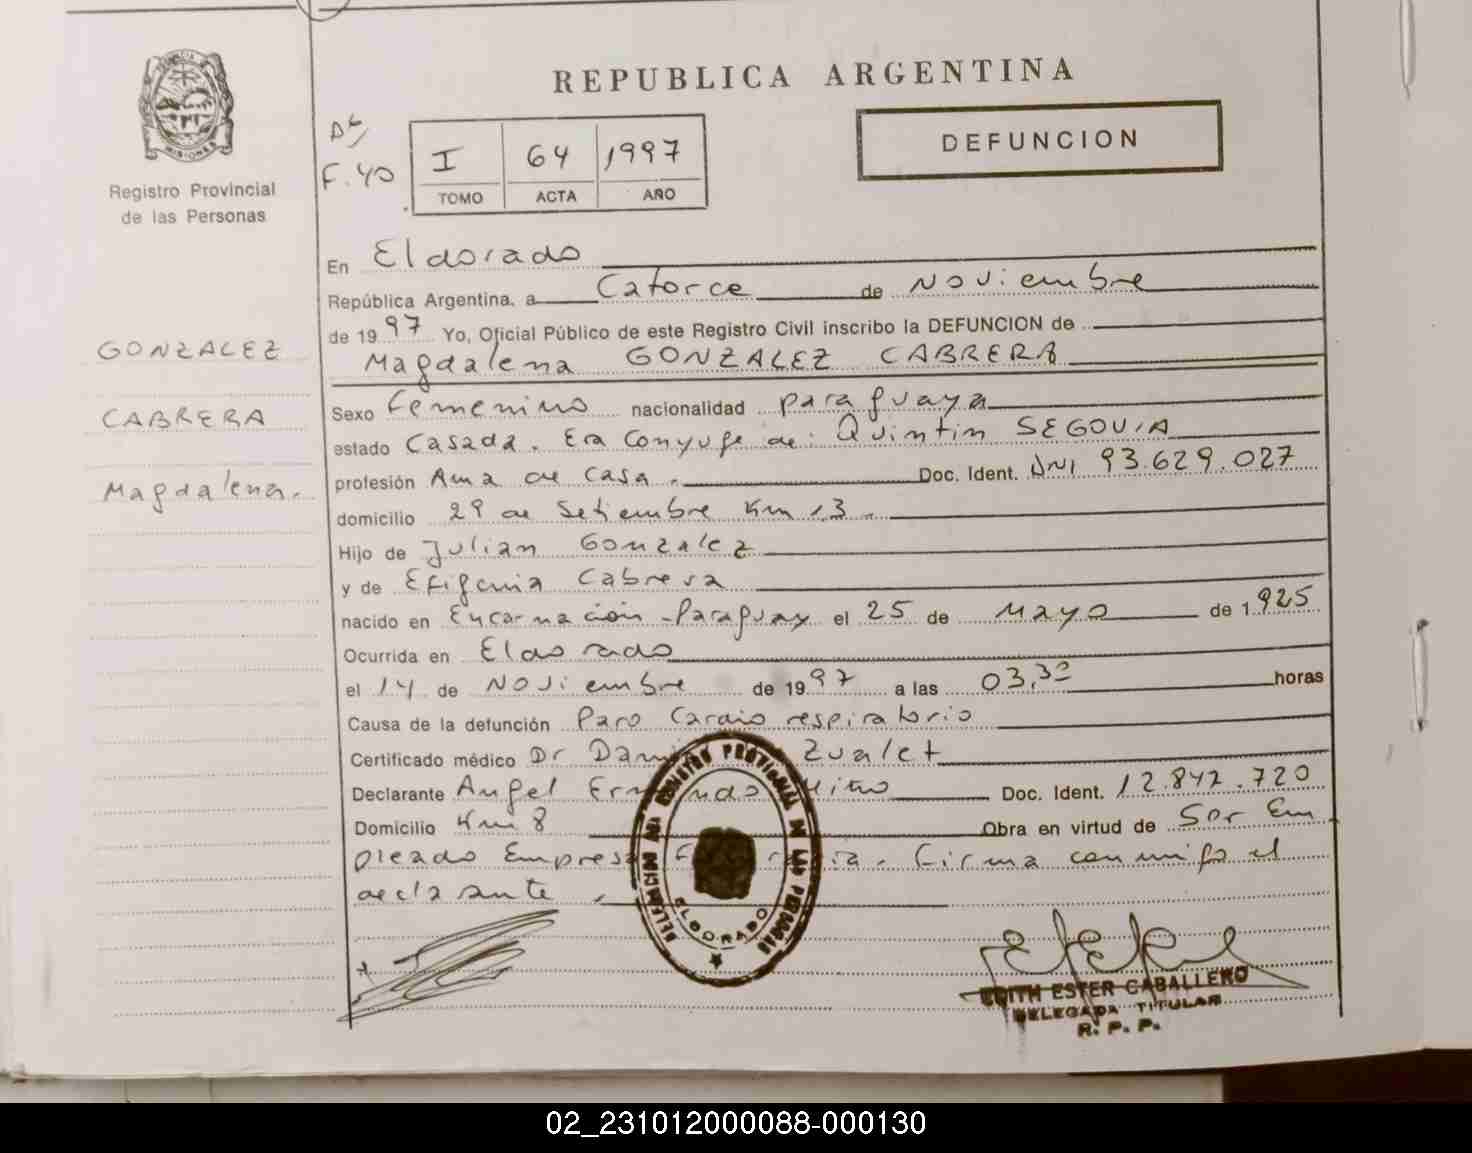 PROVINCIA DE
MISIONES
Registro Provincial
de las Personas
GONZALEZ
CABRERA
Magdalena.
REPUBLICA ARGENTINA
DEFUNCION
F. 40
I 64 1997
TOMO ACTA AÑO
En Eldorado
República Argentina, a Catorce de Noviembre
de 1997 Yo, Oficial Público de este Registro Civil inscribo la DEFUNCION de
Magdalena GONZALEZ CABRERA
Sexo Femenino nacionalidad paraguaya
estado Casada. Era Conyuge de: Quintin SEGOVIA
profesión Ama de Casa. Doc. Ident. DNI 93.629.027
domicilio 29 de Setiembre Km 13.
Hijo de Julian Gonzalez
y de Efigenia Cabrera
nacido en Encarnación - Paraguay el 25 de Mayo de 1.925
Ocurrida en Eldorado
el 14 de Noviembre de 1997 a las 03,30 horas
Causa de la defunción Paro Cardio respiratorio
Certificado médico Dr Zualet
Declarante Angel Doc. Ident. 12.842.720
Domicilio Km 8 Obra en virtud de Ser Em
pleado Empresa Firma conmigo el
declarante.
DELEGACION DEL REGISTRO PROVINCIAL DE LAS PERSONAS
ELDORADO
EDITH ESTER CABALLERO
DELEGADA TITULAR
R. P. P.
02_231012000088-000130